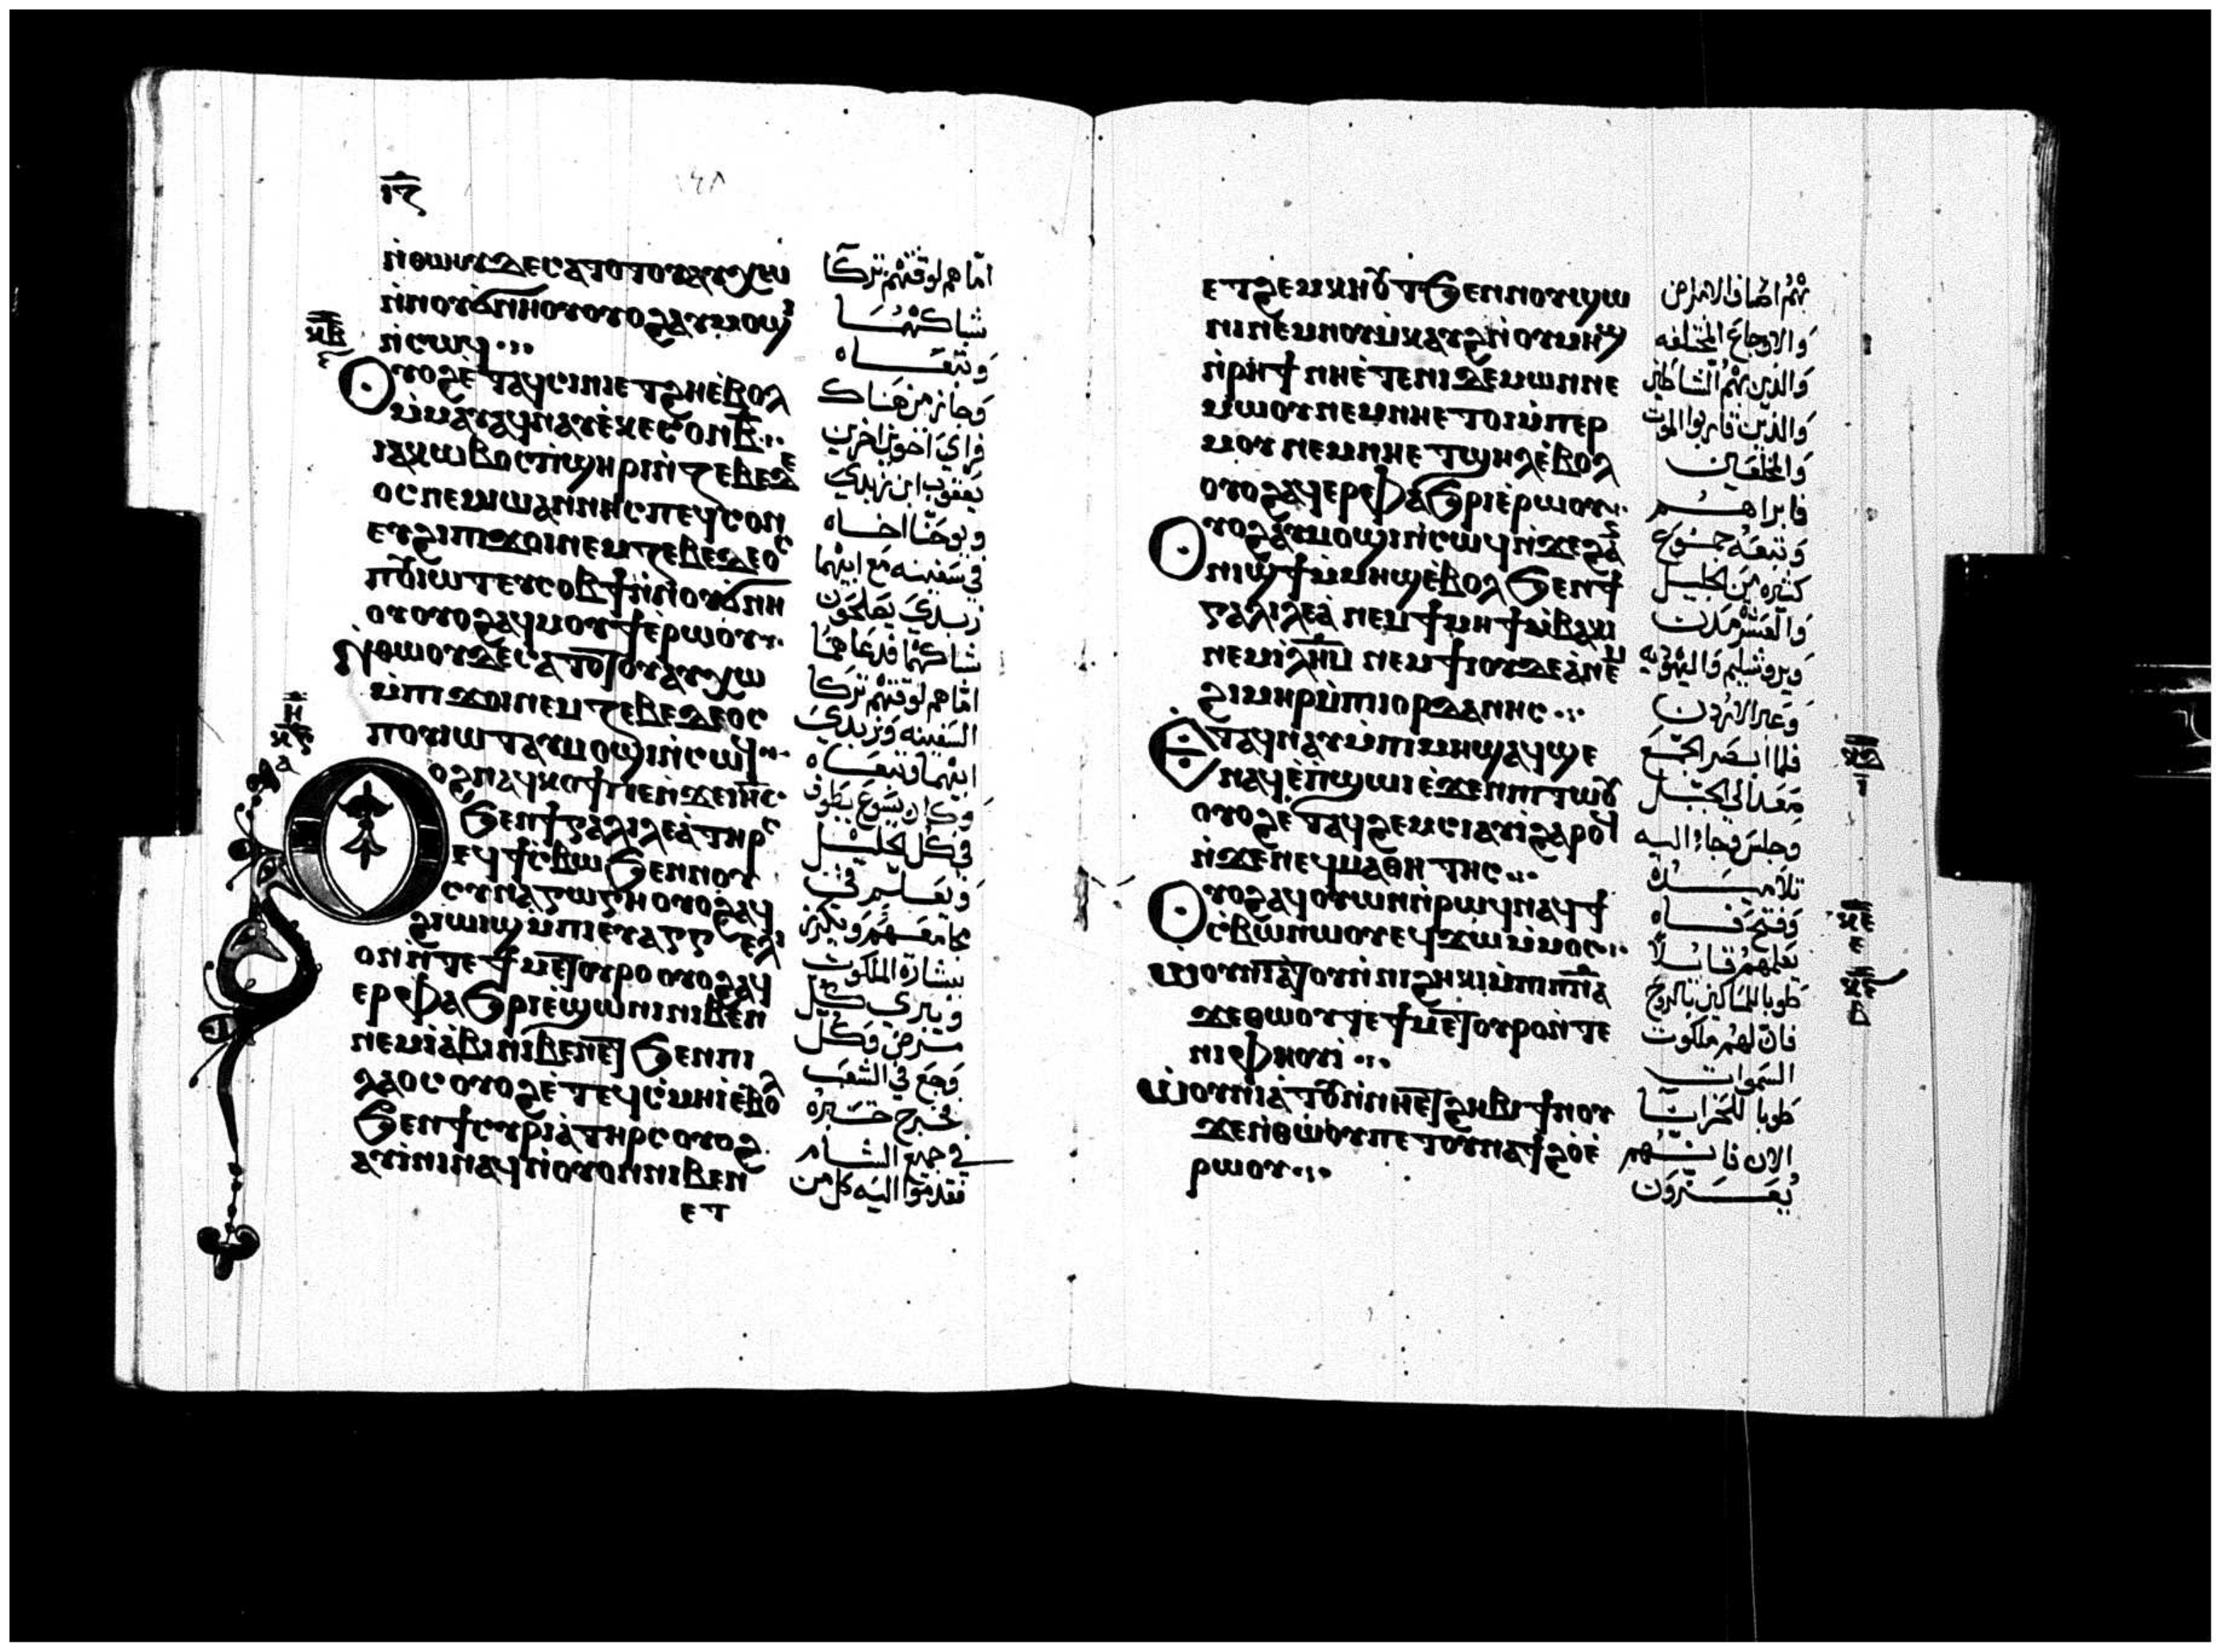 ⲓⲍ
ⲛ̇ⲑⲱⲟⲩⲇⲉⲥⲁⲧⲟⲧⲟⲩⲁⲩⲭⲱ
ⲛ̇ⲛⲟⲩϣ̇ⲛⲏⲟⲩⲟⲩⲟϩⲁⲩⲙⲟϣⲓ
ⲛ̇ⲥⲱϥ
ⲟⲩⲟϩⲉ̇ⲧⲁϥⲥⲓⲛⲓⲉⲧϩⲏⲉ̇ⲃⲟⲗ
ⲙ̇ⲙⲁⲩⲁϥⲛⲁⲩⲉ̇ⲕⲉⲥⲟⲛⲃ̅
ⲓⲁⲕⲱⲃⲟⲥⲡ̇ϣⲏⲣⲓⲛ̇ⲍⲉⲃⲉⲇⲉ
ⲟⲥⲛⲉⲙⲓⲱⲁⲛⲛⲏⲥⲡⲉϥⲥⲟⲛ
ⲉⲩϩⲓⲡⲓϫⲟⲓⲛⲉⲙⲍⲉⲃⲉⲇⲉⲟⲥ
ⲡⲟⲩⲓⲱⲧⲉⲩⲥⲟⲃϯⲛ̇ⲛⲟⲩϣ̇ⲛⲏ
ⲟⲩⲟⲩⲟϩⲁϥⲙⲟⲩϯⲉ̇ⲣⲱⲟⲩ
ⲛ̇ⲑⲱⲟⲩⲇⲉⲥⲁⲧⲟⲧⲟⲩⲁⲩⲭⲱ
ⲙ̇ⲡⲓϫⲟⲓⲛⲉⲙⲍⲉⲃⲉⲇⲉⲟⲥ
ⲡⲟⲩⲓⲱⲧⲁⲩⲙⲟϣⲓⲛ̇ⲥⲱϥ
ⲟⲩⲟϩⲛⲁϥⲕⲱϯⲡⲉⲛ̇ϫⲉⲓⲏⲥ
ϧⲉⲛϯⲅⲁⲗⲓⲗⲉⲁ̇ⲧⲏⲣⲥ
ⲉϥϯⲥ̇ⲃⲱϧⲉⲛⲛⲟⲩ
ⲥⲩⲛⲁⲅⲱⲅⲏⲟⲩⲟϩⲁϥ
ϩⲓⲱⲓϣⲙ̇ⲡⲓⲉⲩⲁⲅⲅⲉⲗⲓ
ⲟⲛⲛ̇ⲧⲉϯⲙⲉⲧⲟⲩⲣⲟⲟⲩⲟϩⲁϥ
ⲉⲣⲫⲁϧⲣⲓⲉ̇ϣⲱⲛⲓⲛⲓⲃⲉⲛ
ⲛⲉⲙⲓⲁ̇ⲃⲓⲛⲓⲃⲉⲛⲉⲧϧⲉⲛⲡⲓ
ⲗⲁⲟⲥⲟⲩⲟϩⲉ̇ⲧⲉϥⲥ̇ⲙⲏⲓⲉ̇ⲃⲟⲗ
ϧⲉⲛϯⲥⲩⲣⲓⲁ̇ⲧⲏⲣⲥⲟⲩⲟϩ
ⲁⲩⲓ̇ⲛⲓⲛⲁϥⲛ̇ⲟⲩⲟⲛⲛⲓⲃⲉⲛ
ⲉⲧ
١٤٨
امّا هم لوقتهم تركا
شباكهُمَا
وتبعَاه
وجاز من هَناك
فراي اخوين اخرين
يَعقوب ابن زبدي
ويوحَنّا اخاه
في سَفينه مَع ابيهما
زبدي يَصلحَون
شباكهما فدعَاهمَا
امّا هم لوقتهم تركا
السَفينه وزبدي
ابيهما وتبعَاه
وكان يسُوع يَطوف
في كل الجليل
ويَعلّم في
مجامَعهم ويكرز
ببشارة الملكوت
ويبري كل
مرض وكل
وَجع في الشعَب
فخرج خبَره
في جميع الشام
فقدموا اليه كل من
ⲕ̅ⲃ̅
ⲏ̅
ⲕ̅ⲅ̅
ⲁ
ⲉⲧϩⲉⲙⲕⲏⲟⲩⲧϧⲉⲛⲛⲟⲩϣⲱ
ⲛⲓⲛⲉⲙⲛⲟⲩⲙ̇ⲕⲁⲩϩⲛ̇ⲟⲩⲙⲏϣ
ⲛ̇ⲣⲏϯⲛⲏⲉ̇ⲧⲉⲛⲓⲇⲉⲙⲱⲛⲛⲉ
ⲙⲱⲟⲩⲛⲉⲙⲛⲏⲉⲧⲟⲓⲙ̇ⲡⲉⲣ
ⲙⲟⲩⲛⲉⲙⲛⲏⲉⲧϣⲏⲗⲉ̇ⲃⲟⲗ
ⲟⲩⲟϩⲁϥⲉⲣⲫⲁϧⲣⲓⲉ̇ⲣⲱⲟⲩ
ⲟⲩⲟϩⲁⲩⲙⲟϣⲓⲛ̇ⲥⲱϥⲛ̇ϫⲉϩⲁⲛ
ⲛⲓϣϯⲙ̇ⲙⲏϣⲉ̇ⲃⲟⲗϧⲉⲛϯ
ⲅⲁⲗⲓⲗⲉⲁ̇ⲛⲉⲙϯⲙⲏϯⲙ̇ⲃⲁⲕⲓ
ⲛⲉⲙⲓⲗⲏⲙⲛⲉⲙϯⲓⲟⲩⲇⲉⲁ̇ⲛⲉⲙ
ϩⲓⲙⲏⲣⲙ̇ⲡⲓⲓⲟⲣⲇⲁⲛⲏⲥ
ⲉ̇ⲧⲁϥⲛⲁⲩⲙ̇ⲡⲓⲙⲏϣⲁϥϣⲉ
ⲛⲁϥⲉ̇ⲡ̇ϣⲱⲓⲉ̇ϫⲉⲛⲡⲓⲧⲱⲟⲩ
ⲟⲩⲟϩⲉ̇ⲧⲁϥϩⲉⲙⲥⲓⲁⲩⲓ̇ϩⲁⲣⲟϥ
ⲛ̇ϫⲉⲛⲉϥⲙⲁⲑⲏⲧⲏⲥ
ⲟⲩⲟϩⲁϥⲟⲩⲱⲛⲛ̇ⲣⲱϥⲛⲁϥϯ
ⲥ̇ⲃⲱⲛⲱⲟⲩⲉϥϫⲱⲙ̇ⲙⲟⲥ
ⲱ̇ⲟⲩⲛⲓⲁⲧⲟⲩⲛ̇ⲛⲓϩⲏⲕⲓⲙ̇ⲡⲓⲡ̅ⲛ̅ⲁ̅
ϫⲉⲑⲱⲟⲩⲧⲉϯⲙⲉⲧⲟⲩⲣⲟⲛ̇ⲧⲉ
ⲛⲓⲫⲏⲟⲩⲓ̇
ⲱ̇ⲟⲩⲛⲓⲁ̇ⲧⲟⲩⲛ̇ⲛⲏⲉⲧϩⲏⲃⲓϯⲛⲟⲩ
ϫⲉⲛ̇ⲑⲱⲟⲩⲡⲉⲧⲟⲩⲛⲁϯϩⲟⲉ̇
ⲣⲱⲟⲩ
والاوجاع المختلفه
والذين بهم الشياطين
والذين قاربوا الموت
والمخلعَين
فابراهم
وتبعَه جمُوع
كثيره من الجليل
والعَشر مدن
ويروشليم واليَهوديه
وعَبر الاردن
فلما ابصَر الجمَع
صَعَد الي الجبَل
وجلس وجاء اليه
تلاميذه
وفتح فاه
يَعلمهُم قايلاً
طوبا للمساكين بالروح
فان لهم ملكوت
السَموات
طوبا للحَزانا
الان فانهم
يُعَزون
ⲕ̅ⲇ̅
ⲓ̅
ⲕ̅ⲉ̅
ⲉ
ⲕ̅ⲋ̅
ⲃ